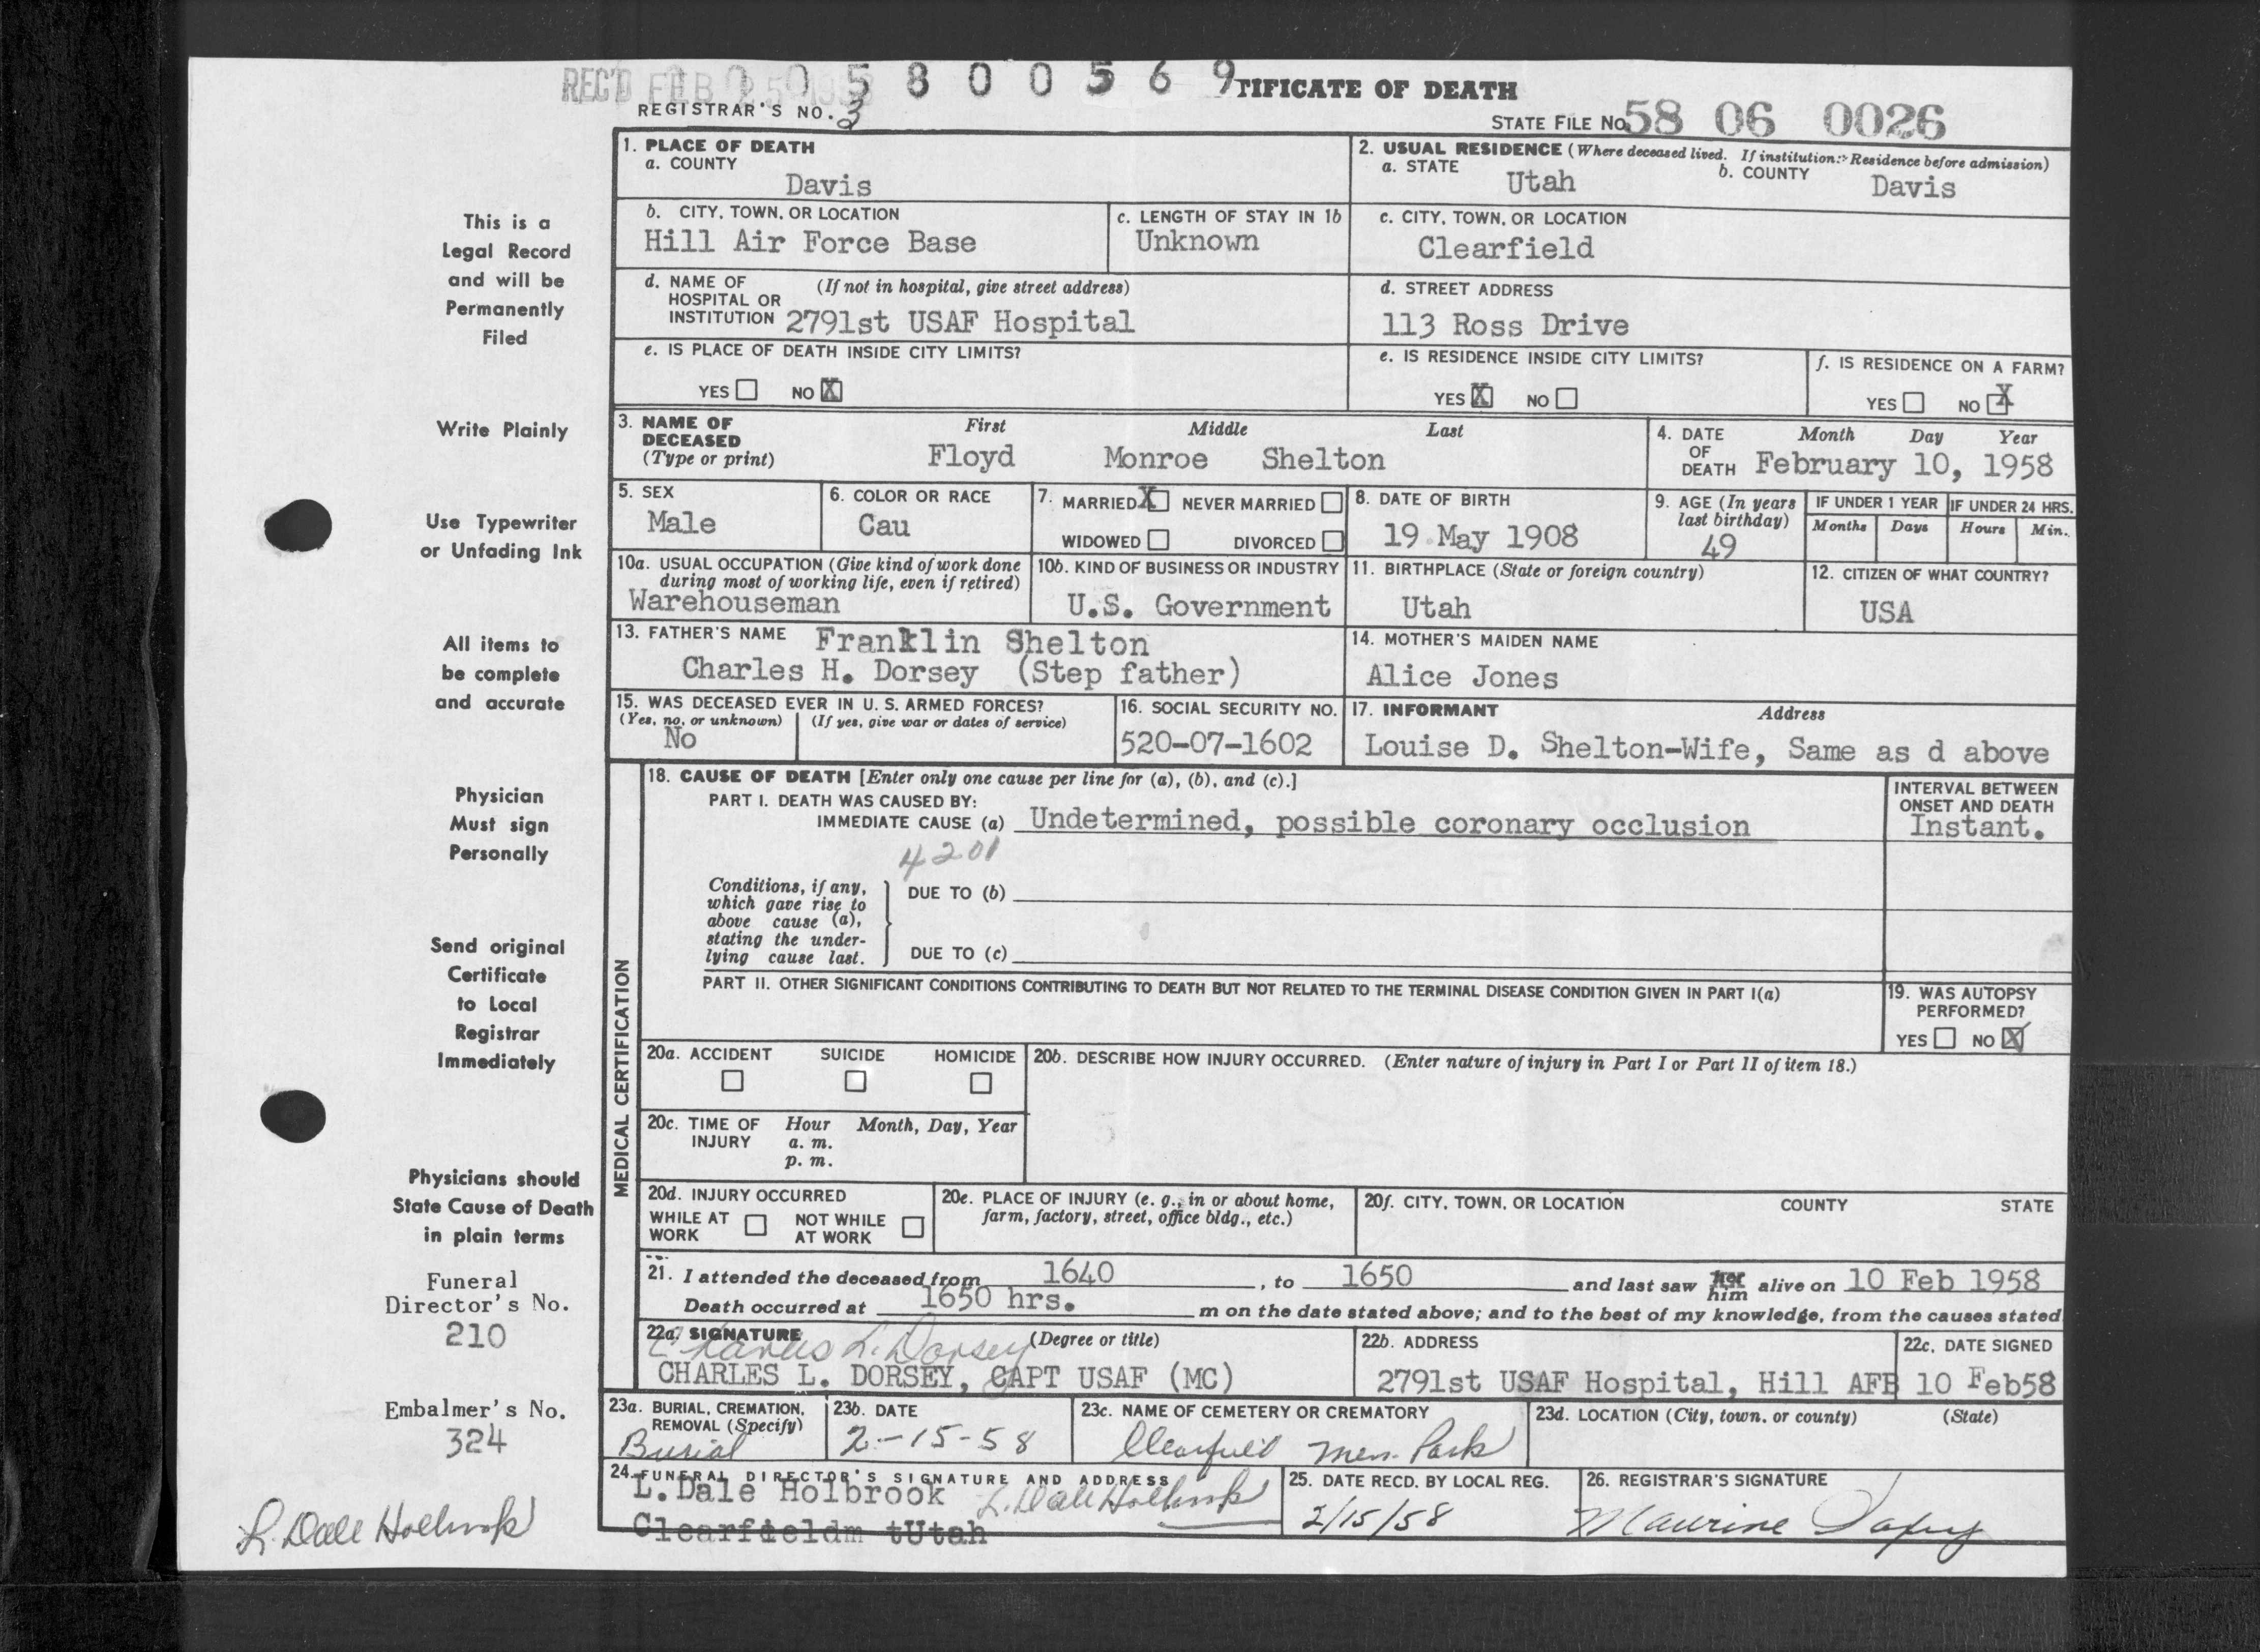 REC'D FEB 1 0 0 5 8 0 0 5 6 9 TIFICATE OF DEATH
REGISTRAR'S NO. 3
STATE FILE No. 58 06 0026
1. PLACE OF DEATH
a. COUNTY
Davis
2. USUAL RESIDENCE (Where deceased lived. If institution: Residence before admission)
a. STATE Utah b. COUNTY Davis
b. CITY, TOWN, OR LOCATION
Hill Air Force Base
c. LENGTH OF STAY IN 1b
Unknown
c. CITY, TOWN, OR LOCATION
Clearfield
d. NAME OF (If not in hospital, give street address)
HOSPITAL OR
INSTITUTION 2791st USAF Hospital
d. STREET ADDRESS
113 Ross Drive
e. IS PLACE OF DEATH INSIDE CITY LIMITS?
YES NO X
e. IS RESIDENCE INSIDE CITY LIMITS?
YES X NO
f. IS RESIDENCE ON A FARM?
YES NO X
3. NAME OF First Middle Last
DECEASED
(Type or print) Floyd Monroe Shelton
4. DATE Month Day Year
OF
DEATH February 10, 1958
5. SEX
Male
6. COLOR OR RACE
Cau
7. MARRIED X NEVER MARRIED
WIDOWED DIVORCED
8. DATE OF BIRTH
19 May 1908
9. AGE (In years
last birthday)
49
IF UNDER 1 YEAR IF UNDER 24 HRS.
Months Days Hours Min.
10a. USUAL OCCUPATION (Give kind of work done
during most of working life, even if retired)
Warehouseman
10b. KIND OF BUSINESS OR INDUSTRY
U.S. Government
11. BIRTHPLACE (State or foreign country)
Utah
12. CITIZEN OF WHAT COUNTRY?
USA
13. FATHER'S NAME Franklin Shelton
Charles H. Dorsey (Step father)
14. MOTHER'S MAIDEN NAME
Alice Jones
15. WAS DECEASED EVER IN U. S. ARMED FORCES?
(Yes, no, or unknown) (If yes, give war or dates of service)
No
16. SOCIAL SECURITY NO.
520-07-1602
17. INFORMANT Address
Louise D. Shelton-Wife, Same as d above
MEDICAL CERTIFICATION
18. CAUSE OF DEATH [Enter only one cause per line for (a), (b), and (c).]
PART I. DEATH WAS CAUSED BY:
IMMEDIATE CAUSE (a) Undetermined, possible coronary occlusion
INTERVAL BETWEEN
ONSET AND DEATH
Instant.
4201
Conditions, if any,
which gave rise to
above cause (a),
stating the under-
lying cause last.
DUE TO (b)
DUE TO (c)
PART II. OTHER SIGNIFICANT CONDITIONS CONTRIBUTING TO DEATH BUT NOT RELATED TO THE TERMINAL DISEASE CONDITION GIVEN IN PART I(a)
19. WAS AUTOPSY
PERFORMED?
YES NO X
20a. ACCIDENT SUICIDE HOMICIDE
20b. DESCRIBE HOW INJURY OCCURRED. (Enter nature of injury in Part I or Part II of item 18.)
20c. TIME OF Hour Month, Day, Year
INJURY a. m.
p. m.
20d. INJURY OCCURRED
WHILE AT NOT WHILE
WORK AT WORK
20e. PLACE OF INJURY (e. g., in or about home,
farm, factory, street, office bldg., etc.)
20f. CITY, TOWN, OR LOCATION COUNTY STATE
21. I attended the deceased from 1640, to 1650 and last saw her him alive on 10 Feb 1958
Death occurred at 1650 hrs. m on the date stated above; and to the best of my knowledge, from the causes stated
22a. SIGNATURE (Degree or title)
Charles L. Dorsey
CHARLES L. DORSEY, CAPT USAF (MC)
22b. ADDRESS
2791st USAF Hospital, Hill AFB
22c. DATE SIGNED
10 Feb58
23a. BURIAL, CREMATION,
REMOVAL (Specify)
Burial
23b. DATE
2-15-58
23c. NAME OF CEMETERY OR CREMATORY
Clearfield Mem. Park
23d. LOCATION (City, town, or county) (State)
24. FUNERAL DIRECTOR'S SIGNATURE AND ADDRESS
L.Dale Holbrook L. Dale Holbrook
Clearfieldm tUtah
25. DATE RECD. BY LOCAL REG.
2/15/58
26. REGISTRAR'S SIGNATURE
Maurine
This is a
Legal Record
and will be
Permanently
Filed
Write Plainly
Use Typewriter
or Unfading Ink
All items to
be complete
and accurate
Physician
Must sign
Personally
Send original
Certificate
to Local
Registrar
Immediately
Physicians should
State Cause of Death
in plain terms
Funeral
Director's No.
210
Embalmer's No.
324
L. Dale Holbrook